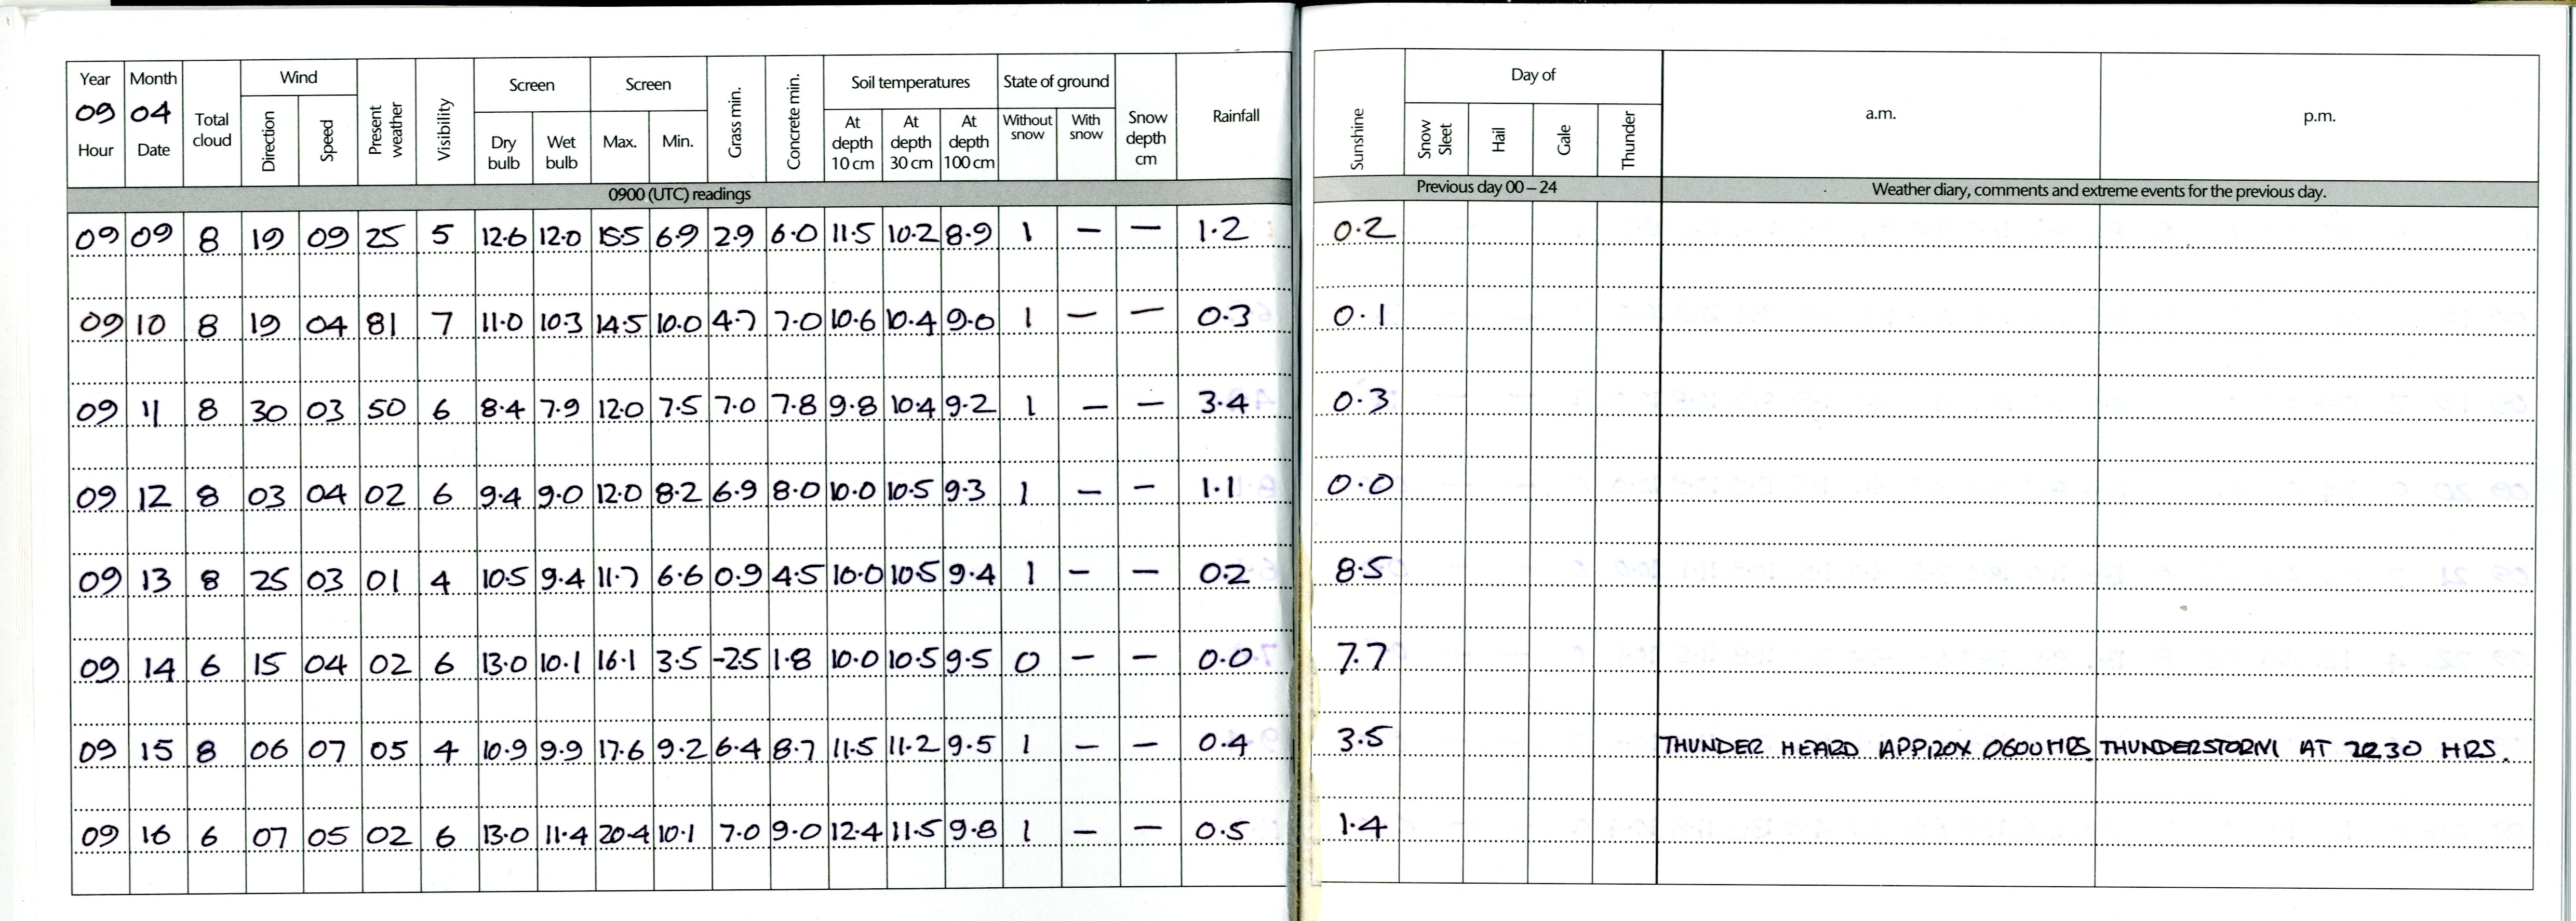 Year Month Total cloud Wind Present weather Visibility Screen Screen Grass min. Concrete min. Soil temperatures State of ground Snow depth cm Rainfall Sunshine Day of a.m. p.m.
09 04
Hour Date Direction Speed Dry bulb Wet bulb Max. Min. At depth 10 cm At depth 30 cm At depth 100 cm Without snow With snow Snow Sleet Hail Gale Thunder
0900 (UTC) readings Previous day 00 – 24 Weather diary, comments and extreme events for the previous day.
09 09 8 19 09 25 5 12.6 12.0 15.5 6.9 2.9 6.0 11.5 10.2 8.9 1 — — 1.2 0.2
09 10 8 19 04 81 7 11.0 10.3 14.5 10.0 4.7 7.0 10.6 10.4 9.0 1 — — 0.3 0.1
09 11 8 30 03 50 6 8.4 7.9 12.0 7.5 7.0 7.8 9.8 10.4 9.2 1 — — 3.4 0.3
09 12 8 03 04 02 6 9.4 9.0 12.0 8.2 6.9 8.0 10.0 10.5 9.3 1 — — 1.1 0.0
09 13 8 25 03 01 4 10.5 9.4 11.7 6.6 0.9 4.5 10.0 10.5 9.4 1 — — 0.2 8.5
09 14 6 15 04 02 6 13.0 10.1 16.1 3.5 -2.5 1.8 10.0 10.5 9.5 0 — — 0.0 7.7
09 15 8 06 07 05 4 10.9 9.9 17.6 9.2 6.4 8.7 11.5 11.2 9.5 1 — — 0.4 3.5 THUNDER HEARD APPROX 0600 HRS. THUNDERSTORM AT 2230 HRS.
09 16 6 07 05 02 6 13.0 11.4 20.4 10.1 7.0 9.0 12.4 11.5 9.8 1 — — 0.5 1.4